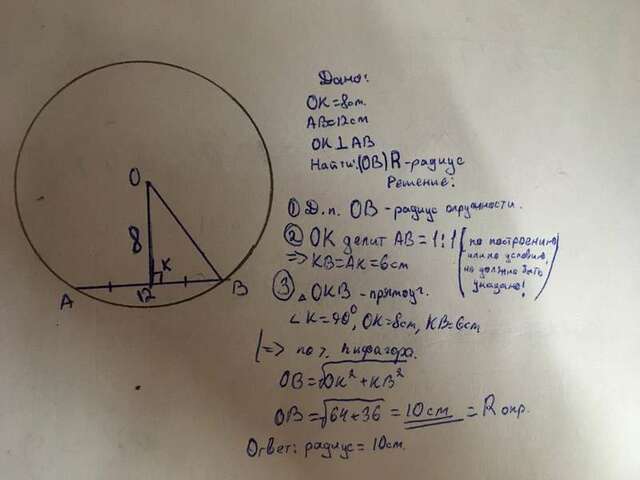 O
8
K
A
12
B
Дано:
OK = 8см.
AB = 12см
OK ⊥ AB
Найти: (OB) R - радиус
Решение:
① Д.п. OB - радиус окружности.
② OK делит AB = 1:1 (по построению
или по условию,
но должно быть
указано!)
=> KB = AK = 6см
③ △ OKB - прямоуг.
∠K = 90°, OK = 8см, KB = 6см
=> по т. Пифагора.
OB = √OK² + KB²
OB = √64 + 36 = 10см = R окр.
Ответ: радиус = 10см.